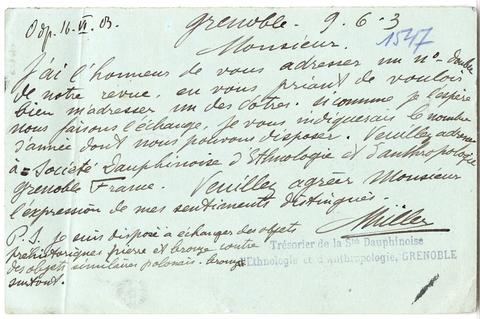 Odp. 16. VI. 03.
Grenoble. 9.6.3
1547
Monsieur.
J'ai l'honneur de vous adresser un n° double
de notre revue, en vous priant de vouloir
bien m'adresser un des votres. si comme je l'espère
nous faisons l'échange, je vous indiquerais le nombre
d'année dont nous pouvons disposer. Veuillez adresser
à = Société Dauphinoise d'Ethnologie et d'anthropologie
Grenoble France. Veuillez agréer Monsieur
l'expression de mes sentiments distingués.
Müller
P.S. Je suis disposé a échanger des objets
préhistoriques pierre et bronze contre
des objets similaires polonais. bronze
surtout.
Trésorier de la Sté Dauphinoise
d'Ethnologie et d'Anthropologie, GRENOBLE